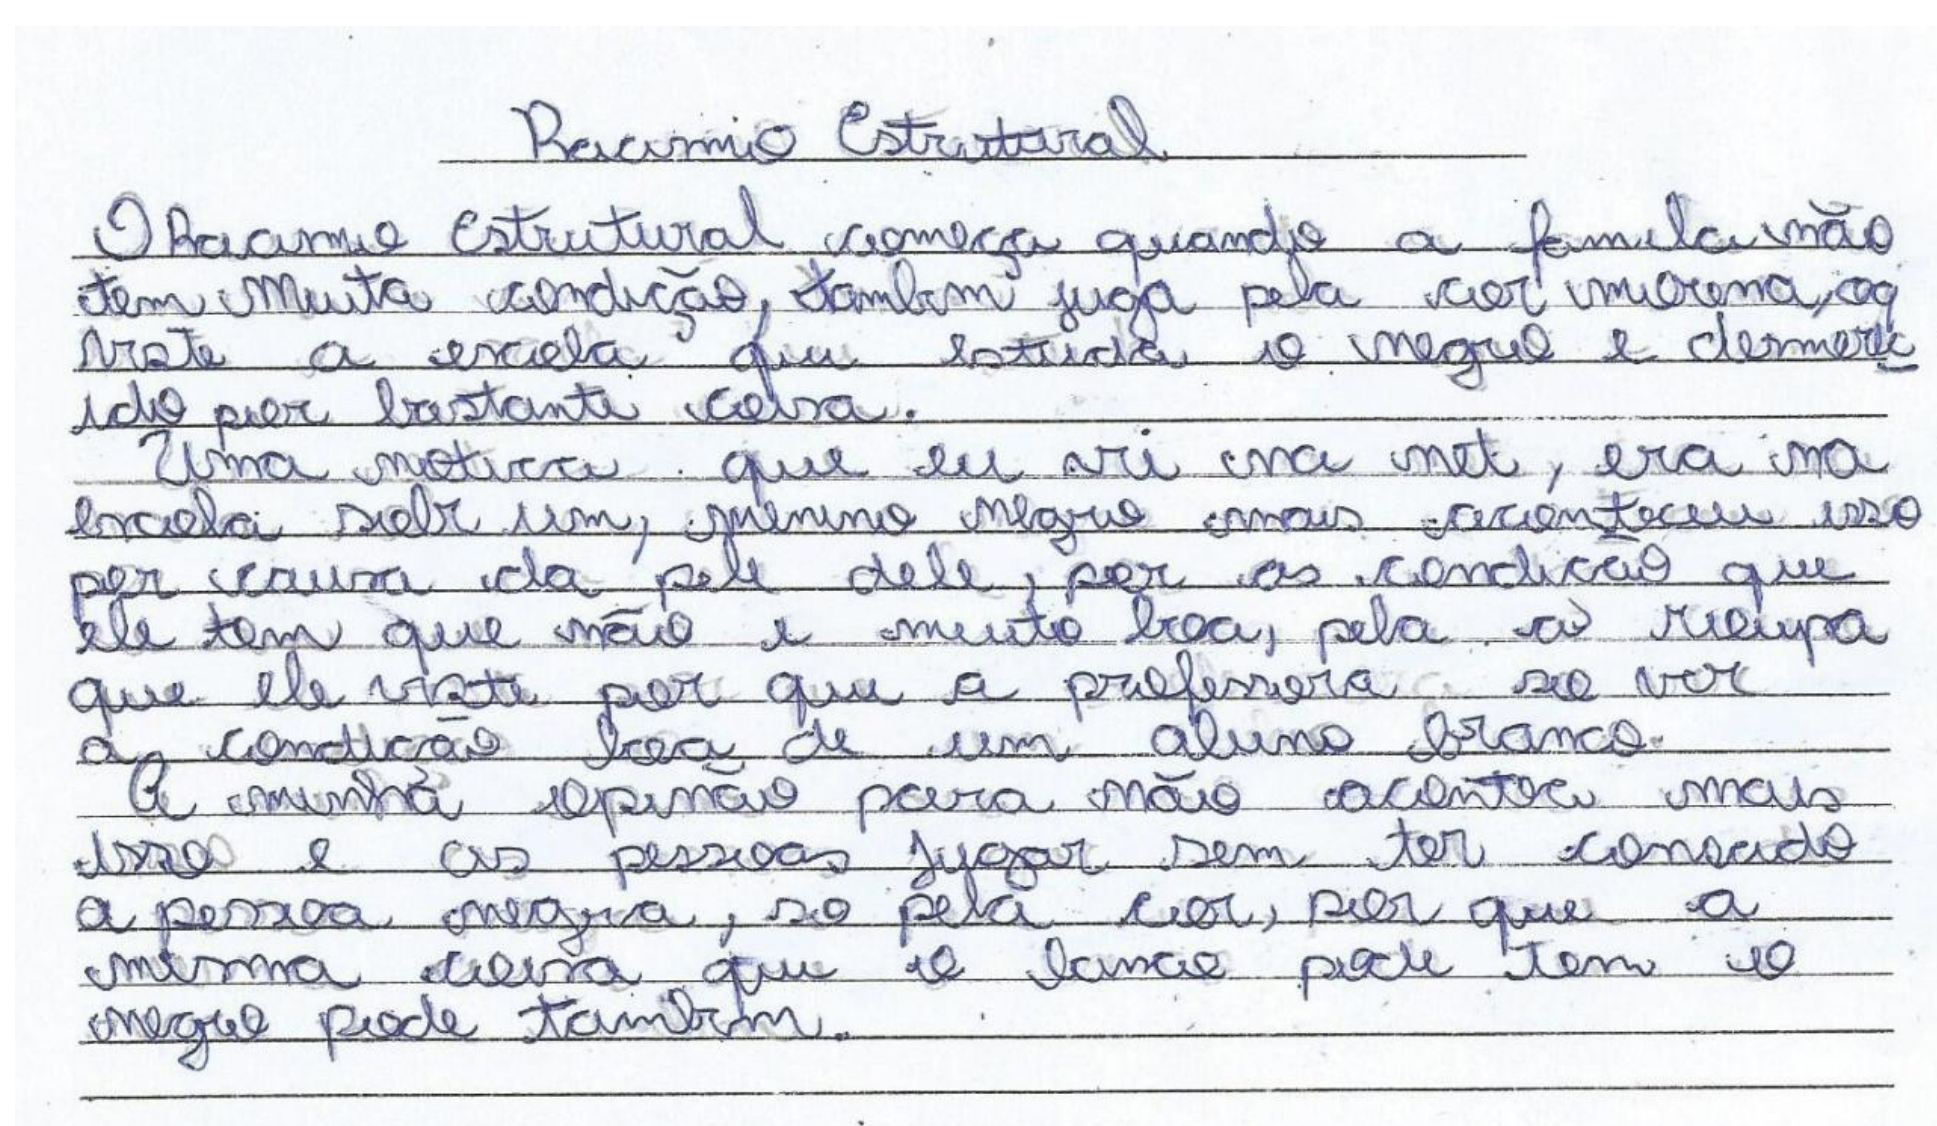 Racismio Estrutural
O Racismio Estrutural começa quando a familа não
tem Muita condição, tambem juga pela cor morena, oq
viste a escola que estuda o negro e desmerec
ido por bastante coisa.
Uma noticia que eu vi na net, era na
escola sobr um, menino negro mais aconteceu isso
por causa da pele dele, por as condicão que
ele tem que não e muito boa, pela a roupa
que ele viste por que a professora so ver
a condicão boa de um aluno branco.
A minha opinão para não acontece mais
isso e as pessoas jugar sem ter
a pessoa negra, so pela cor, por que a
mesma coisa que o banco pode tem o
negro pode tambem.